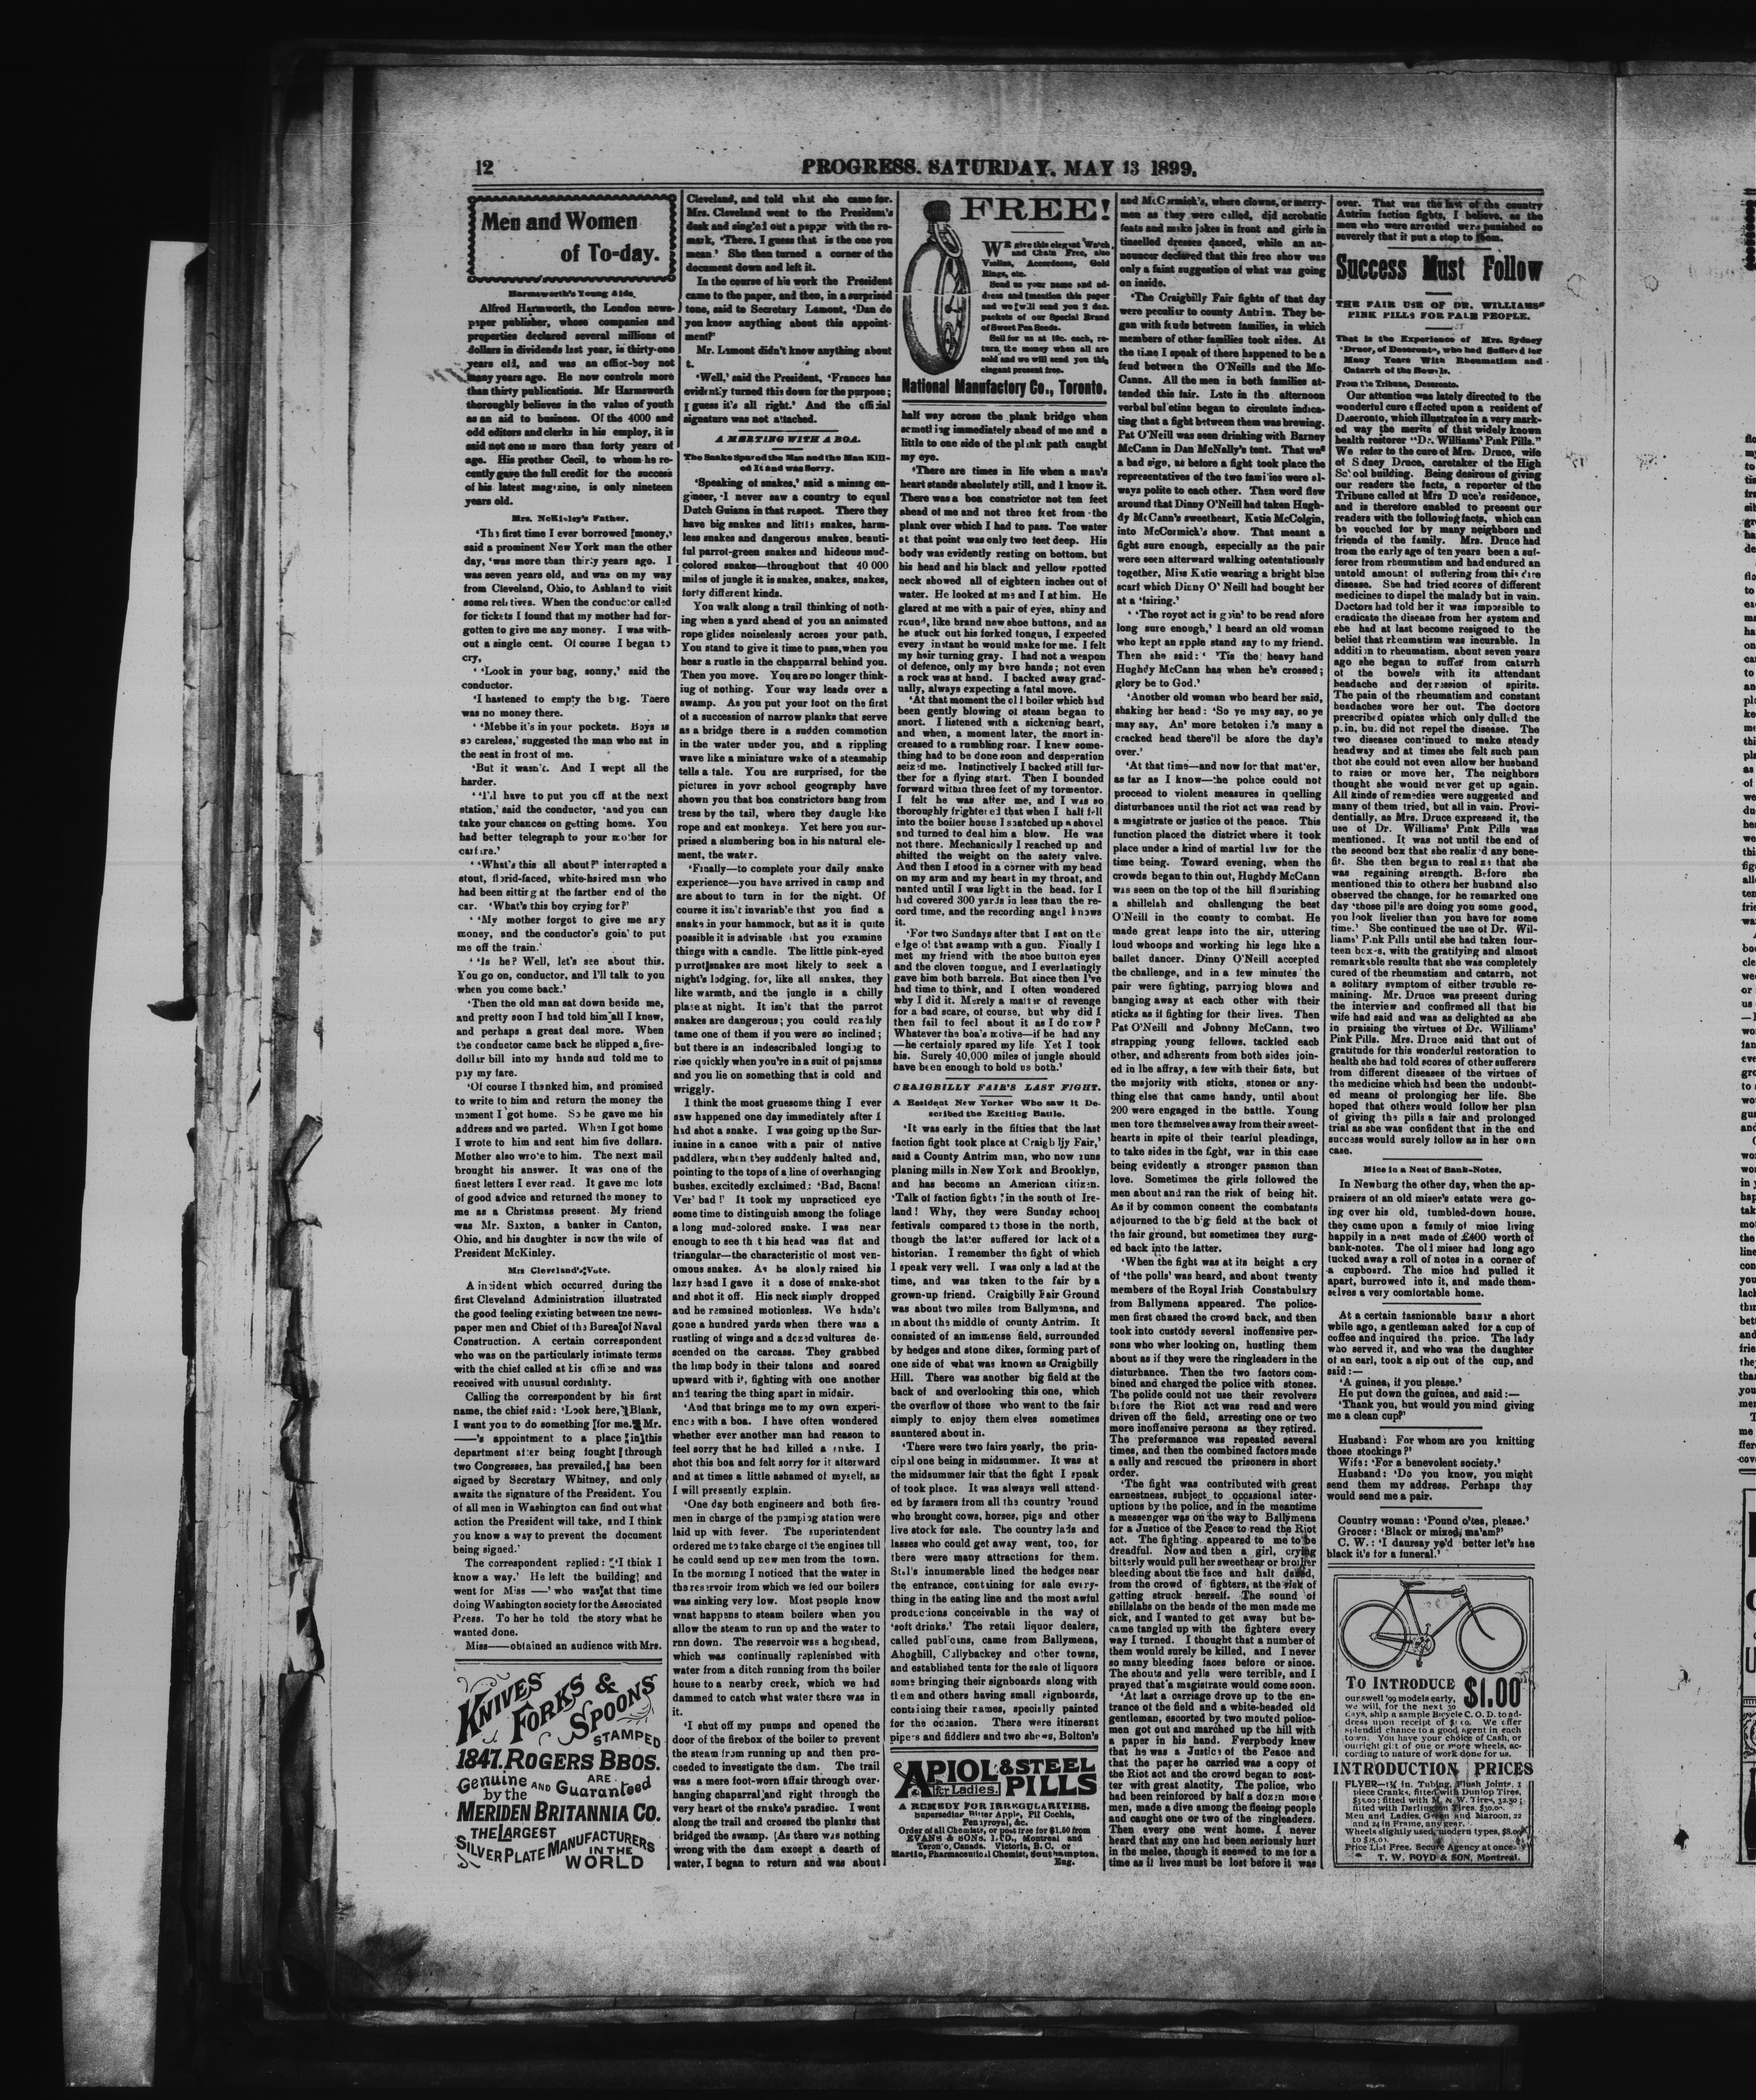 12
PROGRESS. SATURDAY, MAY 13 1899.
Men and Women
of To-day.
Harmsworth's Young Aids.
Alfred Harmworth, the London news-
paper publisher, whose companies and
properties declared several millions of
dollars in dividends last year, is thirty-one
years old, and was an office-boy not
many years ago. He now controls more
than thirty publications. Mr Harmsworth
thoroughly believes in the value of youth
as an aid to business. Of the 4000 and
odd editors and clerks in his employ, it is
said not one is more than forty years of
age. His prother Cecil, to whom he re-
cently gave the full credit for the success
of his latest magazine, is only nineteen
years old.
Mrs. McKinley's Father.
'The first time I ever borrowed money,'
said a prominent New York man the other
day, 'was more than thirty years ago. I
was seven years old, and was on my way
from Cleveland, Ohio, to Ashland to visit
some relatives. When the conductor called
for tickets I found that my mother had for-
gotten to give me any money. I was with-
out a single cent. Of course I began to
cry.
'Look in your bag, sonny,' said the
conductor.
'I hastened to empty the bag. There
was no money there.
'Mebbe it's in your pockets. Boys is
so careless,' suggested the man who sat in
the seat in front of me.
'But it wasn't. And I wept all the
harder.
'I'll have to put you off at the next
station,' said the conductor, 'and you can
take your chances on getting home. You
had better telegraph to your mother for
carfare.'
'What's this all about?' interrupted a
stout, florid-faced, white-haired man who
had been sitting at the farther end of the
car. 'What's this boy crying for?'
'My mother forgot to give me any
money, and the conductor's goin' to put
me off the train.'
'Is he? Well, let's see about this.
You go on, conductor, and I'll talk to you
when you come back.'
'Then the old man sat down beside me,
and pretty soon I had told him all I knew,
and perhaps a great deal more. When
the conductor came back he slipped a five-
dollar bill into my hands and told me to
pay my fare.
'Of course I thanked him, and promised
to write to him and return the money the
moment I got home. So he gave me his
address and we parted. When I got home
I wrote to him and sent him five dollars.
Mother also wrote to him. The next mail
brought his answer. It was one of the
finest letters I ever read. It gave me lots
of good advice and returned the money to
me as a Christmas present. My friend
was Mr. Saxton, a banker in Canton,
Ohio, and his daughter is now the wife of
President McKinley.
Mrs Cleveland's Vote.
A incident which occurred during the
first Cleveland Administration illustrated
the good feeling existing between tne news-
paper men and Chief of the Bureau of Naval
Construction. A certain correspondent
who was on the particularly intimate terms
with the chief called at his office and was
received with unusual cordiality.
Calling the correspondent by his first
name, the chief said: 'Look here, Blank,
I want you to do something for me. Mr.
——'s appointment to a place in this
department after being fought through
two Congresses, has prevailed, has been
signed by Secretary Whitney, and only
awaits the signature of the President. You
of all men in Washington can find out what
action the President will take, and I think
you know a way to prevent the document
being signed.'
The correspondent replied: 'I think I
know a way.' He left the building and
went for Miss ——' who was at that time
doing Washington society for the Associated
Press. To her he told the story what he
wanted done.
Miss——obtained an audience with Mrs.
KNIVES
FORKS &
SPOONS
STAMPED
1847. ROGERS BROS.
ARE
Genuine AND Guaranteed
by the
MERIDEN BRITANNIA CO.
THE LARGEST
SILVER PLATE MANUFACTURERS
IN THE
WORLD
Cleveland, and told what she came for.
Mrs. Cleveland went to the President's
desk and singled out a paper with the re-
mark, 'There, I guess that is the one you
mean.' She then turned a corner of the
document down and left it.
In the course of his work the President
came to the paper, and then, in a surprised
tone, said to Secretary Lamont, 'Dan do
you know anything about this appoint-
ment?'
Mr. Lamont didn't know anything about
t.
'Well,' said the President, 'Frances has
evidently turned this down for the purpose;
I guess it's all right.' And the official
signature was not attached.
A MEETING WITH A BOA.
The Snake Spared the Man and the Man Kill-
ed It and was Sorry.
'Speaking of snakes,' said a mining en-
gineer, 'I never saw a country to equal
Dutch Guiana in that respect. There they
have big snakes and little snakes, harm-
less snakes and dangerous snakes, beauti-
ful parrot-green snakes and hideous mud-
colored snakes—throughout that 40 000
miles of jungle it is snakes, snakes, snakes,
forty different kinds.
You walk along a trail thinking of noth-
ing when a yard ahead of you an animated
rope glides noiselessly across your path.
You stand to give it time to pass, when you
hear a rustle in the chapparral behind you.
Then you move. You are no longer think-
iug of nothing. Your way leads over a
swamp. As you put your foot on the first
of a succession of narrow planks that serve
as a bridge there is a sudden commotion
in the water under you, and a rippling
wave like a miniature wake of a steamship
tells a tale. You are surprised, for the
pictures in yovr school geography have
shown you that boa constrictors hang from
tress by the tail, where they daugle like
rope and eat monkeys. Yet here you sur-
prised a slumbering boa in his natural ele-
ment, the water.
'Finally—to complete your daily snake
experience—you have arrived in camp and
are about to turn in for the night. Of
course it isn't invariable that you find a
snake in your hammock, but as it is quite
possible it is advisable that you examine
things with a candle. The little pink-eyed
parrot snakes are most likely to seek a
night's lodging, for, like all snakes, they
like warmth, and the jungle is a chilly
place at night. It isn't that the parrot
snakes are dangerous; you could readily
tame one of them if you were so inclined;
but there is an indescribaled longing to
rise quickly when you're in a suit of pajamas
and you lie on something that is cold and
wriggly.
I think the most gruesome thing I ever
saw happened one day immediately after I
had shot a snake. I was going up the Sur-
inaine in a canoe with a pair of native
paddlers, when they suddenly halted and,
pointing to the tops of a line of overhanging
bushes, excitedly exclaimed: 'Bad, Bacna!
Ver' bad!' It took my unpracticed eye
some time to distinguish among the foliage
a long mud-colored snake. I was near
enough to see th t his head was flat and
triangular—the characteristic of most ven-
omous snakes. As he slowly raised his
lazy head I gave it a dose of snake-shot
and shot it off. His neck simply dropped
and he remained motionless. We hadn't
gone a hundred yards when there was a
rustling of wings and a dozed vultures de-
scended on the carcass. They grabbed
the limp body in their talons and soared
upward with it, fighting with one another
and tearing the thing apart in midair.
'And that brings me to my own experi-
ence with a boa. I have often wondered
whether ever another man had reason to
feel sorry that he had killed a snake. I
shot this boa and felt sorry for it afterward
and at times a little ashamed of myself, as
I will presently explain.
'One day both engineers and both fire-
men in charge of the pumping station were
laid up with fever. The superintendent
ordered me to take charge of the engines till
he could send up new men from the town.
In the morning I noticed that the water in
the reservoir from which we fed our boilers
was sinking very low. Most people know
wnat happens to steam boilers when you
allow the steam to run up and the water to
rnn down. The reservoir was a hogshead,
which was continually replenished with
water from a ditch running from the boiler
house to a nearby creek, which we had
dammed to catch what water there was in
it.
'I shut off my pumps and opened the
door of the firebox of the boiler to prevent
the steam from running up and then pro-
ceeded to investigate the dam. The trail
was a mere foot-worn affair through over-
hanging chaparral and right through the
very heart of the snake's paradise. I went
along the trail and crossed the planks that
bridged the swamp. As there was nothing
wrong with the dam except a dearth of
water, I began to return and was about
FREE!
We give this elegant Watch
and Chain Free, also
Violins, Accordeons, Gold
Rings, etc.
Send us your name and ad-
dress and mention this paper
and we will send you 2 doz.
packets of our Special Brand
of Sweet Pea Seeds.
Sell for us at 10c. each, re-
turn the money when all are
sold and we will send you this
elegant present free.
National Manufactory Co., Toronto.
half way across the plank bridge when
something immediately ahead of me and a
little to one side of the plank path caught
my eye.
'There are times in life when a man's
heart stands absolutely still, and I know it.
There was a boa constrictor not ten feet
ahead of me and not three feet from the
plank over which I had to pass. Tne water
at that point was only two feet deep. His
body was evidently resting on bottom, but
his head and his black and yellow spotted
neck showed all of eighteen inches out of
water. He looked at me and I at him. He
glared at me with a pair of eyes, shiny and
round, like brand new shoe buttons, and as
he stuck out his forked tongue, I expected
every instant he would make for me. I felt
my heir turning gray. I had not a weapon
of defence, only my bare hands; not even
a rock was at hand. I backed away grad-
ually, always expecting a fatal move.
'At that moment the old boiler which had
been gently blowing of steam began to
snort. I listened with a sickening heart,
and when, a moment later, the snort in-
creased to a rumbling roar. I knew some-
thing had to be done soon and desperation
seized me. Instinctively I backed still fur-
ther for a flying start. Then I bounded
forward within three feet of my tormentor.
I felt he was after me, and I was so
thoroughly frightered that when I half fell
into the boiler house I snatched up a shovel
and turned to deal him a blow. He was
not there. Mechanically I reached up and
shifted the weight on the safety valve.
And then I stood in a corner with my head
on my arm and my heart in my throat, and
panted until I was light in the head, for I
had covered 300 yards in less than the re-
cord time, and the recording angel knows
it.
'For two Sundays after that I sat on the
edge of that swamp with a gun. Finally I
met my friend with the shoe button eyes
and the cloven tongue, and I everlastingly
gave him both barrels. But since then I've
had time to think, and I often wondered
why I did it. Merely a matter of revenge
for a bad scare, of course, but why did I
then fail to feel about it as I do now?
Whatever the boa's motive—if he had any
—he certainly spared my life Yet I took
his. Surely 40,000 miles of jungle should
have been enough to hold us both.'
CRAIGBILLY FAIR'S LAST FIGHT.
A Resident New Yorker Who saw it De-
scribed the Exciting Battle.
'It was early in the fifties that the last
faction fight took place at Craigbilly Fair,'
said a County Antrim man, who now runs
planing mills in New York and Brooklyn,
and has become an American citizen.
'Talk of faction fights in the south of Ire-
land! Why, they were Sunday school
festivals compared to those in the north,
though the latter suffered for lack of a
historian. I remember the fight of which
I speak very well. I was only a lad at the
time, and was taken to the fair by a
grown-up friend. Craigbilly Fair Ground
was about two miles from Ballymena, and
in about the middle of county Antrim. It
consisted of an immense field, surrounded
by hedges and stone dikes, forming part of
one side of what was known as Craigbilly
Hill. There was another big field at the
back of and overlooking this one, which
the overflow of those who went to the fair
simply to enjoy them elves sometimes
sauntered about in.
'There were two fairs yearly, the prin-
cipal one being in midsummer. It was at
the midsummer fair that the fight I speak
of took place. It was always well attend-
ed by farmers from all the country 'round
who brought cows, horses, pigs and other
live stock for sale. The country lads and
lasses who could get away went, too, for
there were many attractions for them.
Stal's innumerable lined the hedges near
the entrance, containing for sale every-
thing in the eating line and the most awful
productions conceivable in the way of
'soft drinks.' The retail liquor dealers,
called publicans, came from Ballymena,
Ahoghill, Cullybackey and other towns,
and established tents for the sale of liquors
some bringing their signboards along with
them and others having small signboards,
containing their names, specially painted
for the occasion. There were itinerant
pipers and fiddlers and two shows, Bolton's
APIOL & STEEL
for Ladies. PILLS
A REMEDY FOR IRREGULARITIES.
Superseding Bitter Apple, Pil Cochia,
Pennyroyal, &c.
Order of all Chemists, or post free for $1.50 from
EVANS & SONS, LTD., Montreal and
Toronto, Canada. Victoria, B. C. or
Martin, Pharmaceutical Chemist, Southampton,
Eng.
and McCormick's, where clowns, or merry-
men as they were called, did acrobatic
feats and make jokes in front and girls in
tinselled dresses danced, while an an-
nouncer declared that this free show was
only a faint suggestion of what was going
on inside.
'The Craigbilly Fair fights of that day
were peculiar to county Antrim. They be-
gan with feuds between families, in which
members of other families took sides. At
the time I speak of there happened to be a
feud between the O'Neills and the Mc-
Canns. All the men in both families at-
tended this fair. Late in the afternoon
verbal bulletins began to circulate indica-
ting that a fight between them was brewing.
Pat O'Neill was seen drinking with Barney
McCann in Dan McNally's tent. That was
a bad sign, as before a fight took place the
representatives of the two families were al-
ways polite to each other. Then word flew
around that Dinny O'Neill had taken Hugh-
dy McCann's sweetheart, Katie McColgin,
into McCormick's show. That meant a
fight sure enough, especially as the pair
were seen afterward walking ostentatiously
together, Miss Katie wearing a bright blue
scarf which Dinny O' Neill had bought her
at a 'fairing.'
'The royot act is goin' to be read afore
long sure enough,' I heard an old woman
who kept an apple stand say to my friend.
Then she said: ' 'Tis the heavy hand
Hughdy McCann has when he's crossed;
glory be to God.'
'Another old woman who heard her said,
shaking her head: 'So ye may say, so ye
may say. An' more betoken it's many a
cracked head there'll be afore the day's
over.'
'At that time—and now for that matter,
as far as I know—the police could not
proceed to violent measures in quelling
disturbances until the riot act was read by
a magistrate or justice of the peace. This
function placed the district where it took
place under a kind of martial law for the
time being. Toward evening, when the
crowds began to thin out, Hughdy McCann
was seen on the top of the hill flourishing
a shillelah and challenging the best
O'Neill in the county to combat. He
made great leaps into the air, uttering
loud whoops and working his legs like a
ballet dancer. Dinny O'Neill accepted
the challenge, and in a few minutes the
pair were fighting, parrying blows and
banging away at each other with their
sticks as if fighting for their lives. Then
Pat O'Neill and Johnny McCann, two
strapping young fellows, tackled each
other, and adherents from both sides join-
ed in lbe affray, a few with their fists, but
the majority with sticks, stones or any-
thing else that came handy, until about
200 were engaged in the battle. Young
men tore themselves away from their sweet-
hearts in spite of their tearful pleadings,
to take sides in the fight, war in this case
being evidently a stronger passion than
love. Sometimes the girls followed the
men about and ran the risk of being hit.
As if by common consent the combatants
adjourned to the big field at the back of
the fair ground, but sometimes they surg-
ed back into the latter.
'When the fight was at its height a cry
of 'the polls' was heard, and about twenty
members of the Royal Irish Constabulary
from Ballymena appeared. The police-
men first chased the crowd back, and then
took into custody several inoffensive per-
sons who wher looking on, hustling them
about as if they were the ringleaders in the
disturbance. Then the two factors com-
bined and charged the police with stones.
The polide could not use their revolvers
before the Riot act was read and were
driven off the field, arresting one or two
more inoffensive persons as they retired.
The preformance was repeated several
times, and then the combined factors made
a sally and rescued the prisoners in short
order.
'The fight was contributed with great
earnestness, subject to occasional inter-
uptions by the police, and in the meantime
a messenger was on the way to Ballymena
for a Justice of the Peace to read the Riot
act. The fighting appeared to me to be
dreadful. Now and then a girl, crying
bitterly would pull her sweethear or brother
bleeding about the face and halt dazed,
from the crowd of fighters, at the risk of
getting struck herself. The sound of
shillslahs on the heads of the men made me
sick, and I wanted to get away but be-
came tangled up with the fighters every
way I turned. I thought that a number of
them would surely be killed, and I never
so many bleeding faces before or since.
The shouts and yells were terrible, and I
prayed that a magistrate would come soon.
'At last a carriage drove up to the en-
trance of the field and a white-headed old
gentleman, escorted by two mouted police-
men got out and marched up the hill with
a paper in his hand. Everpbody knew
that he was a Justice of the Peace and
that the paper he carried was a copy of
the Riot act and the crowd began to scat-
ter with great alacrity. The police, who
had been reinforced by half a dozen more
men, made a dive among the fleeing people
and caught one or two of the ringleaders.
Then every one went home. I never
heard that any one had been seriously hurt
in the melee, though it seemed to me for a
time as if lives must be lost before it was
over. That was the last of the country
Antrim faction fights, I believe, as the
men who were arrested were punished so
severely that it put a stop to them.
Success Must Follow
THE FAIR USE OF DR. WILLIAMS'
PINK PILLS FOR PALE PEOPLE.
That is the Experience of Mrs. Sydney
Druce, of Deseronto, who had Suffered for
Many Years With Rheumatism and
Catarrh of the Bowels.
From the Tribune, Deseronto.
Our attention was lately directed to the
wonderful cure effected upon a resident of
Deseronto, which illustrates in a very mark-
ed way the merits of that widely known
health restorer "Dr. Williams' Pink Pills."
We refer to the cure of Mrs. Druce, wife
of Sidney Druce, caretaker of the High
School building. Being desirous of giving
our readers the facts, a reporter of the
Tribune called at Mrs D uce's residence,
and is therefore enabled to present our
readers with the following facts, which can
be vouched for by many neighbors and
friends of the family. Mrs. Druce had
from the early age of ten years been a suf-
ferer from rheumatism and had endured an
untold amount of suffering from this dire
disease. She had tried scores of different
medicines to dispel the malady but in vain.
Doctors had told her it was impossible to
eradicate the disease from her system and
she had at last become resigned to the
belief that rheumatism was incurable. In
addition to rheumatism, about seven years
ago she began to suffer from catarrh
of the bowels with its attendant
headache and depression of spirits.
The pain of the rheumatism and constant
headaches wore her out. The doctors
prescribed opiates which only dulled the
pain, but did not repel the disease. The
two diseases continued to make steady
headway and at times she felt such pain
thot she could not even allow her husband
to raise or move her. The neighbors
thought she would never get up again.
All kinds of remedies were suggested and
many of them tried, but all in vain. Provi-
dentially, as Mrs. Druce expressed it, the
use of Dr. Williams' Pink Pills was
mentioned. It was not until the end of
the second box that she realized any bene-
fit. She then began to realize that she
was regaining strength. Before she
mentioned this to others her husband also
observed the change, for he remarked one
day 'those pills are doing you some good,
you look livelier than you have for some
time.' She continued the use of Dr. Wil-
liams' Pink Pills until she had taken four-
teen boxes, with the gratifying and almost
remarkable results that she was completely
cured of the rheumatism and catarrh, not
a solitary symptom of either trouble re-
maining. Mr. Druce was present during
the interview and confirmed all that his
wife had said and was as delighted as she
in praising the virtues of Dr. Williams'
Pink Pills. Mrs. Druce said that out of
gratitude for this wonderful restoration to
health she had told scores of other sufferers
from different diseases of the virtues of
the medicine which had been the undoubt-
ed means of prolonging her life. She
hoped that others would follow her plan
of giving the pills a fair and prolonged
trial as she was confident that in the end
success would surely follow as in her own
case.
Mice in a Nest of Bank-Notes.
In Newburg the other day, when the ap-
praisers of an old miser's estate were go-
ing over his old, tumbled-down house,
they came upon a family of mice living
happily in a nest made of £400 worth of
bank-notes. The old miser had long ago
tucked away a roll of notes in a corner of
a cupboard. The mice had pulled it
apart, burrowed into it, and made them-
selves a very comfortable home.
At a certain fashionable bazar a short
while ago, a gentleman asked for a cup of
coffee and inquired the price. The lady
who served it, and who was the daughter
of an earl, took a sip out of the cup, and
said:—
'A guinea, if you please.'
He put down the guinea, and said:—
'Thank you, but would you mind giving
me a clean cup?'
Husband: For whom are you knitting
those stockings?'
Wife: 'For a benevolent society.'
Husband: 'Do you know, you might
send them my address. Perhaps they
would send me a pair.
Country woman: 'Pound o'tea, please.'
Grocer: 'Black or mixed, ma'am?'
C. W.: 'I dauresay ye'd better let's hae
black it's for a funeral.'
TO INTRODUCE $1.00
our swell '99 models early,
we will, for the next 30
days, ship a sample Bicycle C. O. D. to ad-
dress upon receipt of $1.00. We offer
splendid chance to a good agent in each
town. You have your choice of Cash, or
outright gift of one or more wheels, ac-
cording to nature of work done for us.
INTRODUCTION PRICES
FLYER—1¼ in. Tubing, Flush Joints, 1
piece Cranks, fitted with Dunlop Tires,
$35.00; fitted with M. & W. Tires, $32.50;
fitted with Darlington Tires, $30.00.
Men and Ladies, Green and Maroon, 22
and 24 in Frame, any gear.
Wheels slightly used, modern types, $8.00
to $25.00.
Price List Free. Secure Agency at once.
T. W. BOYD & SON, Montreal.